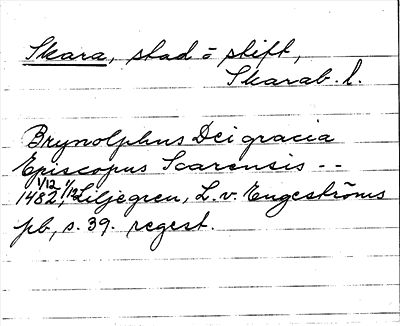 Skara, stad o stift,
Skarab. l.
Brynolphus Dei gracia
Episcopus Scarensis --
1482 1/12, Liljegren, L. v. Engeströms
pb, s. 39. regest.